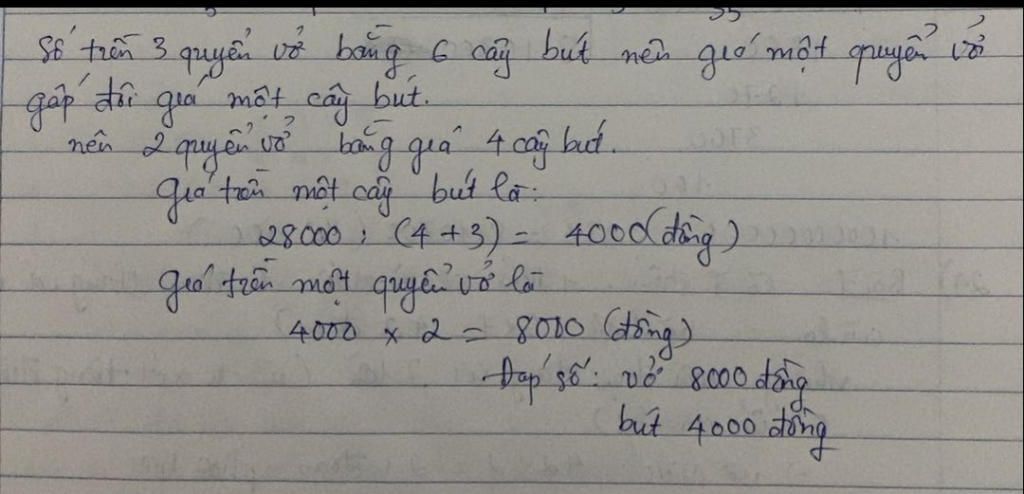 Số tiền 3 quyển vở bằng 6 cây bút nên giá một quyển vở
gấp đôi giá một cây bút.
nên 2 quyển vở bằng giá 4 cây bút.
Giá tiền một cây bút là:
28000 : (4 + 3) = 4000 (đồng)
Giá tiền một quyển vở là
4000 x 2 = 8000 (đồng)
Đáp số: vở 8000 đồng
bút 4000 đồng